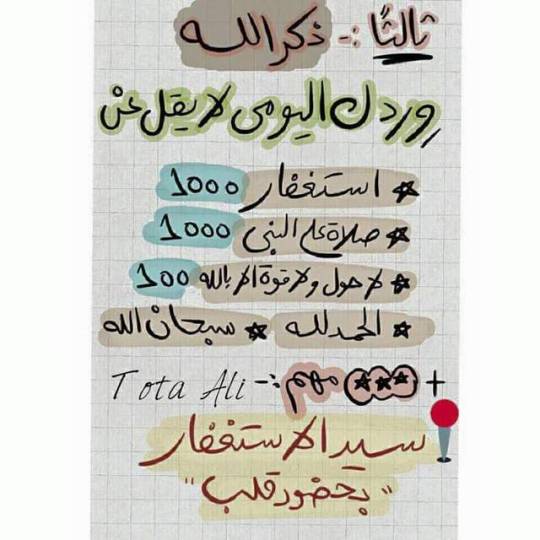 ثالثًا :- ذكر الله
وردك اليومى لا يقل عن
استغفار 1000
صلاة على النبى 1000
لا حول ولا قوة الا بالله 100
الحمدلله * سبحان الله
+ *** مهم :- Tota Ali
سيد الاستغفار
"بحضور قلب"